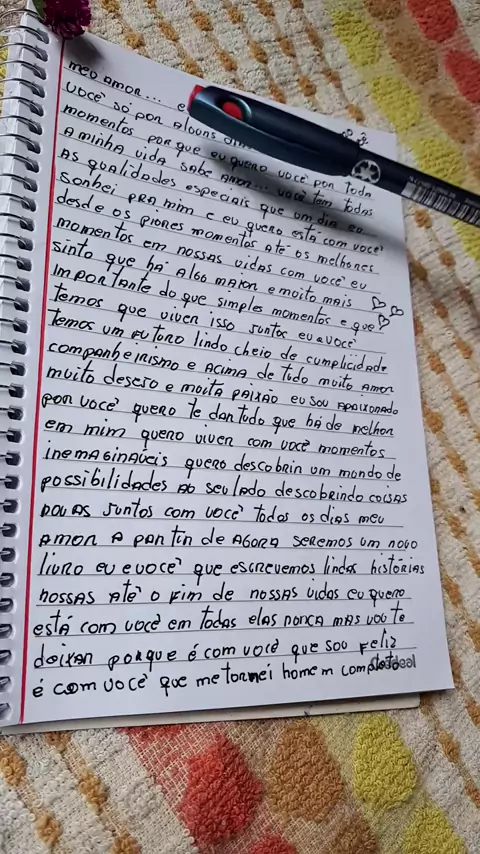 meu amor... e
você só por alguns
momentos porque eu quero você por toda
a minha vida sabe amor... você tem todas
as qualidades especiais que um dia eu
sonhei pra mim e eu quero está com você
desde os piores momentos até os melhores
momentos em nossas vidas com você eu
sinto que há algo maior e muito mais
importante do que simples momentos e que
temos que viver isso juntos eu e você
temos um futuro lindo cheio de cumplicidade
companheirismo e acima de tudo muito amor
muito desejo e muita paixão eu sou apaixonado
por você quero te dar tudo que há de melhor
em mim quero viver com você momentos
inemagináveis quero descobrir um mundo de
possibilidades ao seu lado descobrindo coisas
novas juntos com você todos os dias meu
amor a partir de agora seremos um novo
livro eu e você que escrevemos lindas histórias
nossas até o fim de nossas vidas eu quero
está com você em todas elas nunca mas vou te
deixar porque é com você que sou feliz
é com você que me tornei homem completo